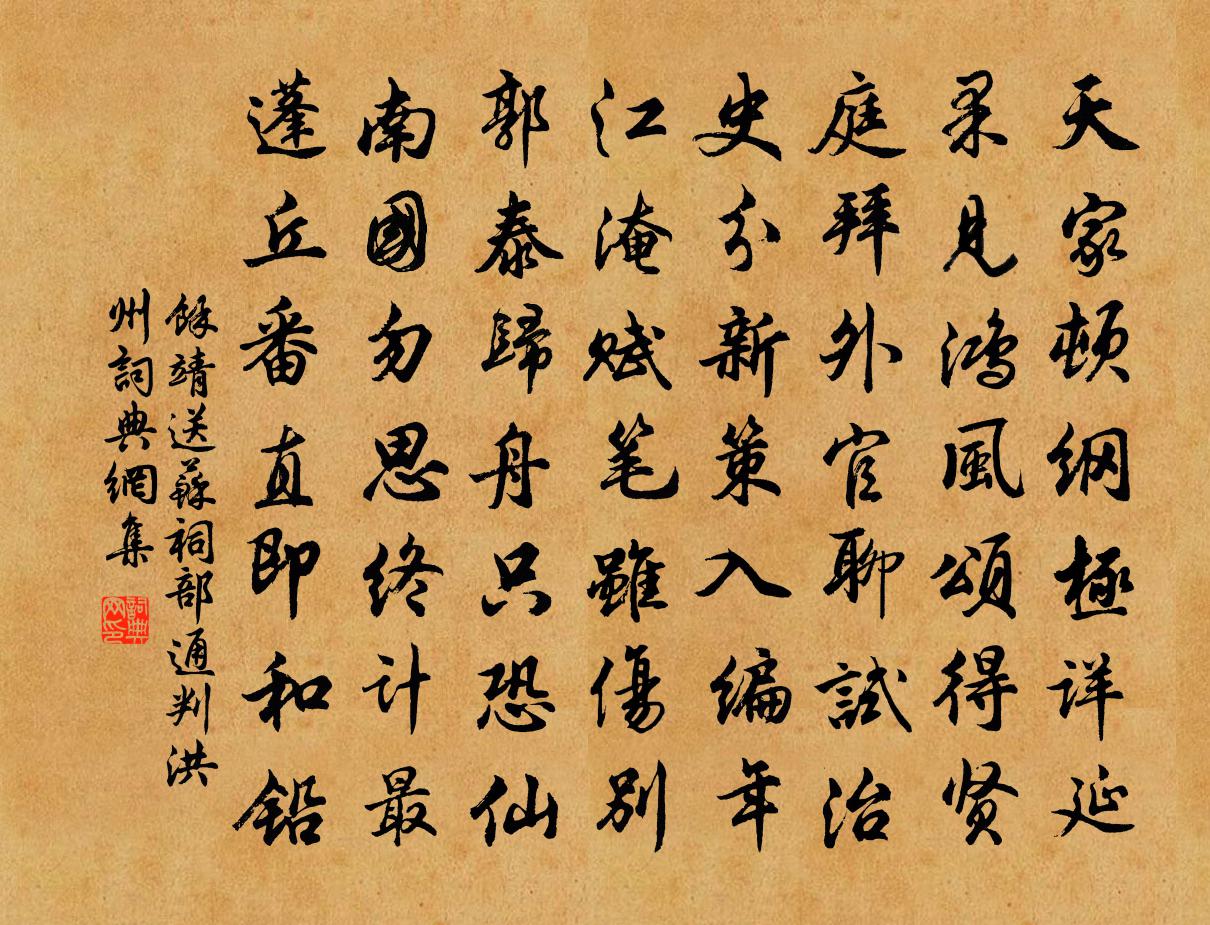 天家顿纲極详延
果見鸿風頌得贤
庭拜外官聊試治
史分新策入编年
江淹赋笔雖傷别
郭泰歸舟只恐仙
南國勿思终计最
蓬丘番直即和铅
餘靖送蘇祠部通判洪
州詞典網集
詞典網印